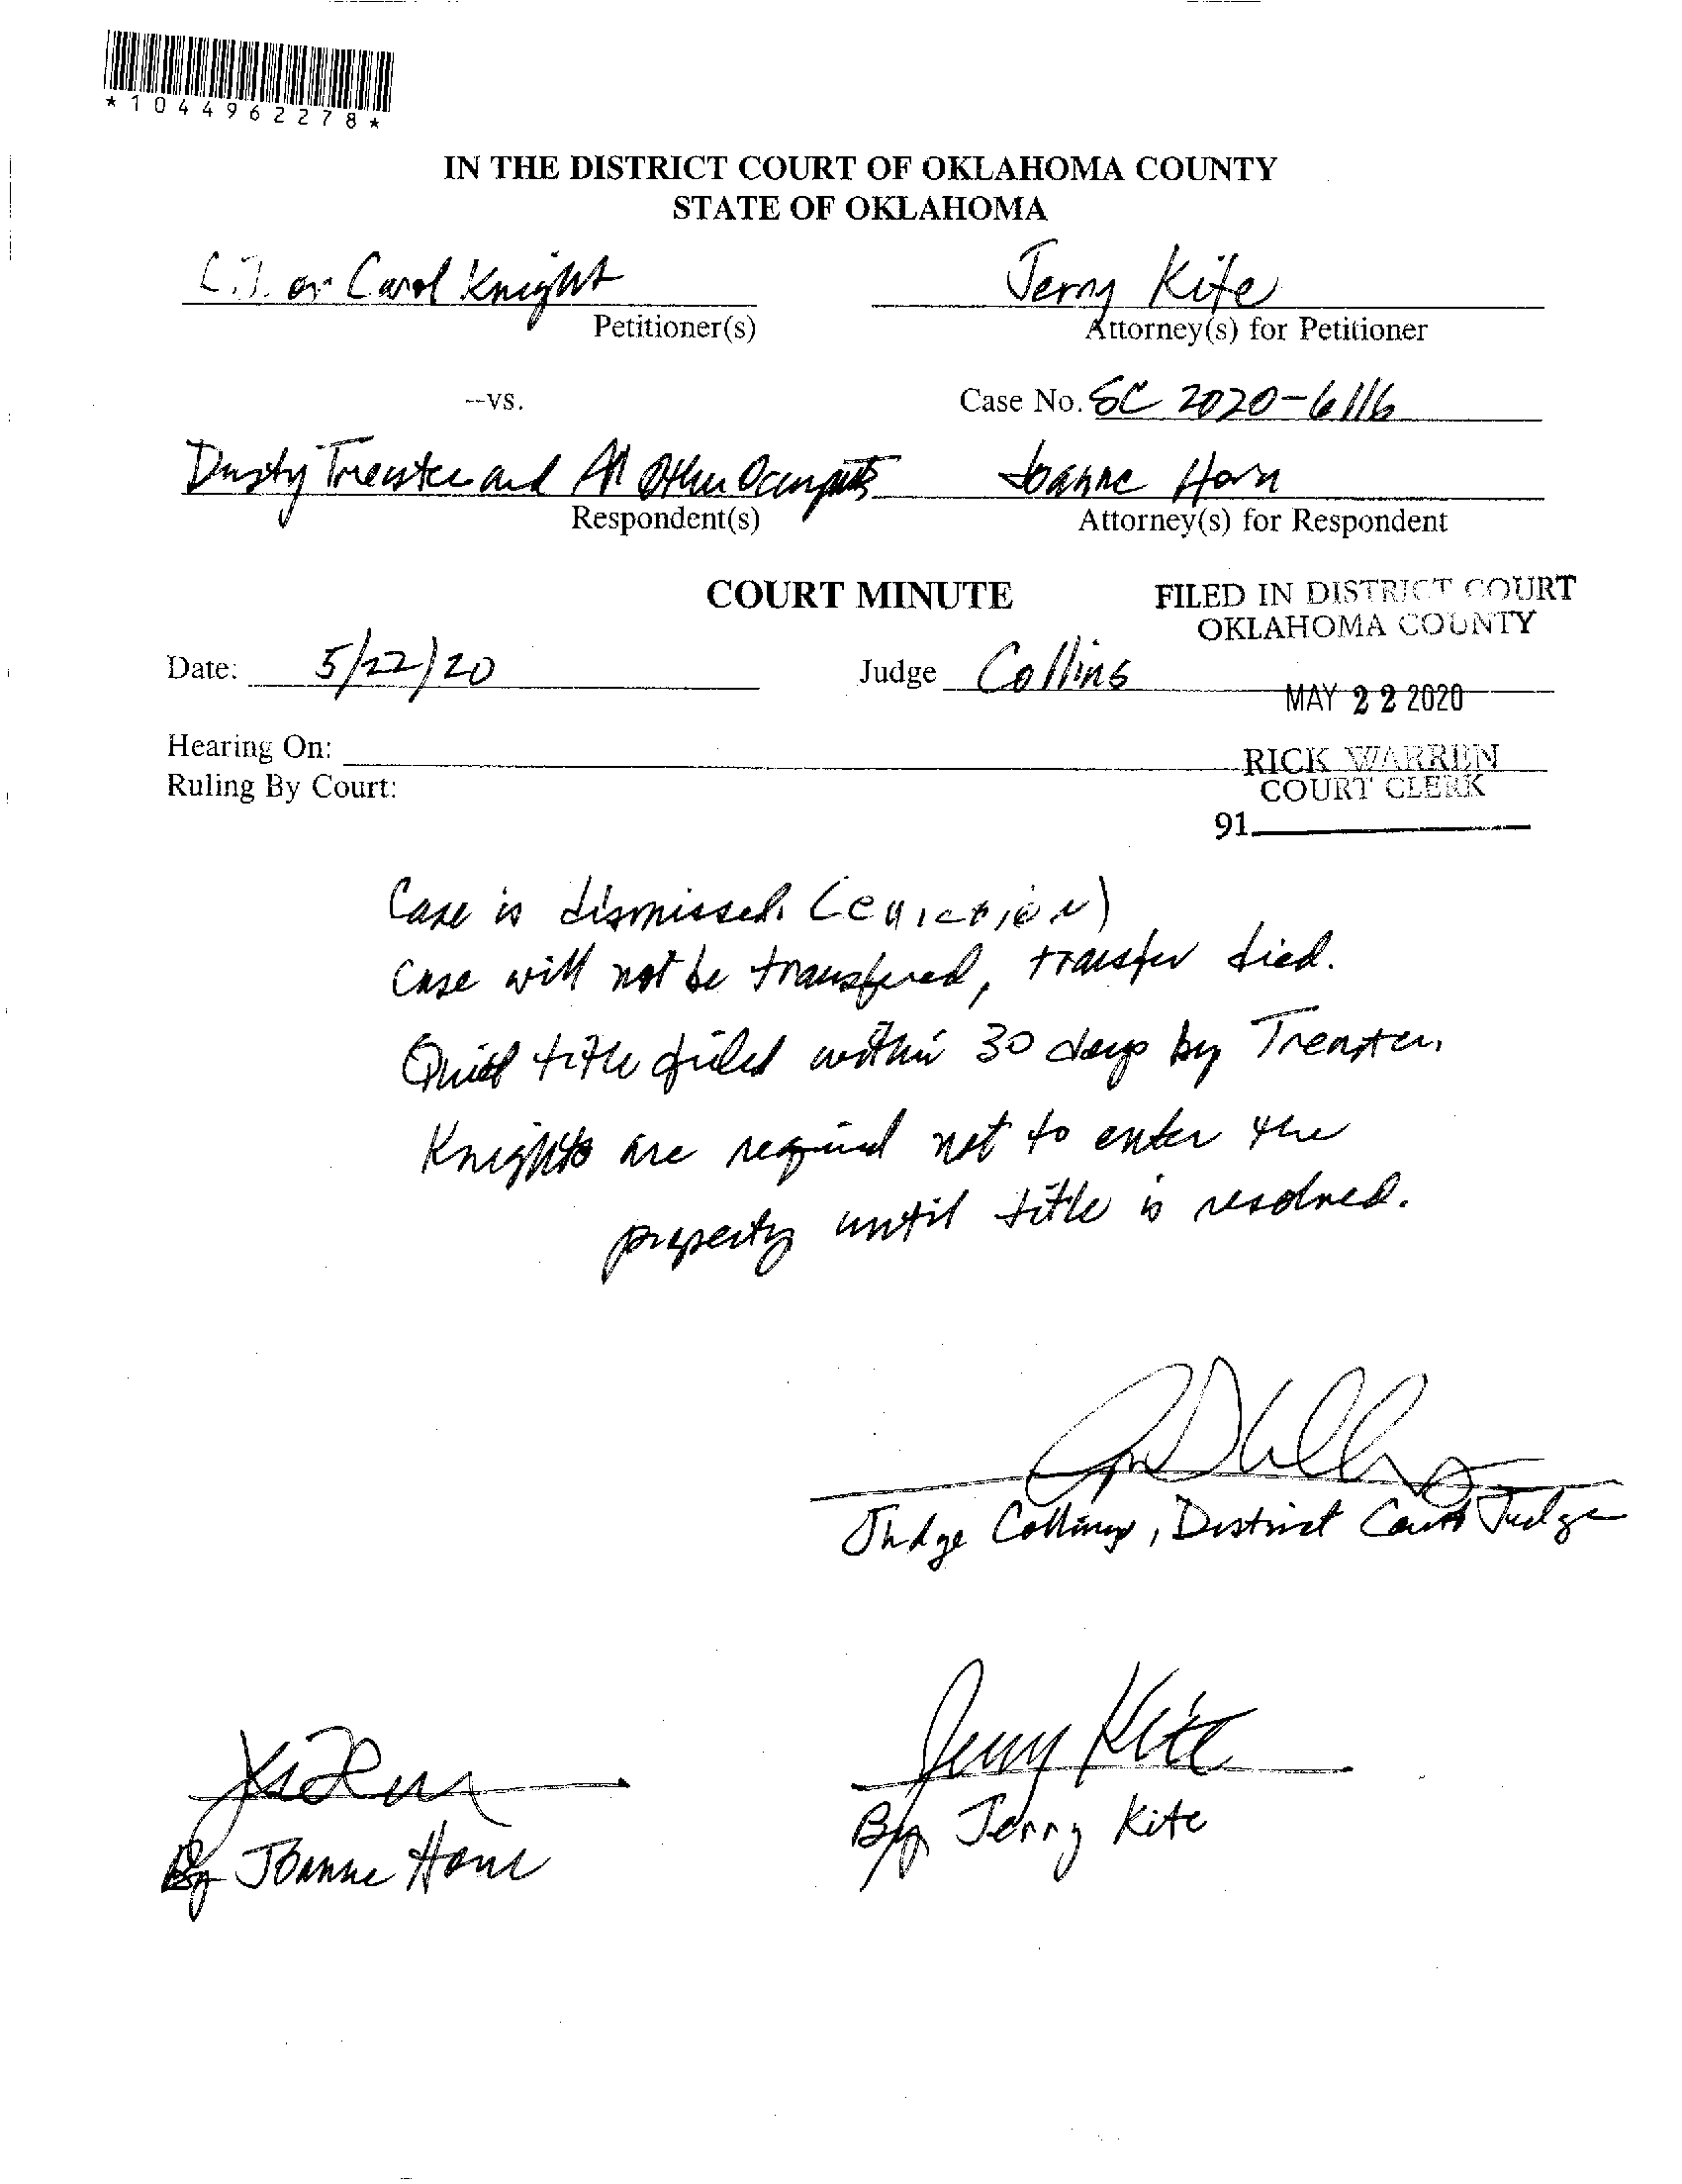 *1044962278*
IN THE DISTRICT COURT OF OKLAHOMA COUNTY
STATE OF OKLAHOMA
C.J. or Carol Knight
Jerry Kite
Petitioner(s)
Attorney(s) for Petitioner
--vs.
Case No. SC 2020-6116
Dusty Treester and All Other Occupants
Joanne Horn
Respondent(s)
Attorney(s) for Respondent
COURT MINUTE
FILED IN DISTRICT COURT
OKLAHOMA COUNTY
Date: 5/22/20
Judge Collins
MAY 22 2020
Hearing On:
RICK WARREN
Ruling By Court:
COURT CLERK
91
Case is dismissed. (eviction)
Case will not be transfered, transfer died.
Quiet title filed within 30 days by Treester.
Knights are required not to enter the
property until title is resolved.
Judge Collins, District Court Judge
Jerry Kite
By Joanne Horn
By Jerry Kite